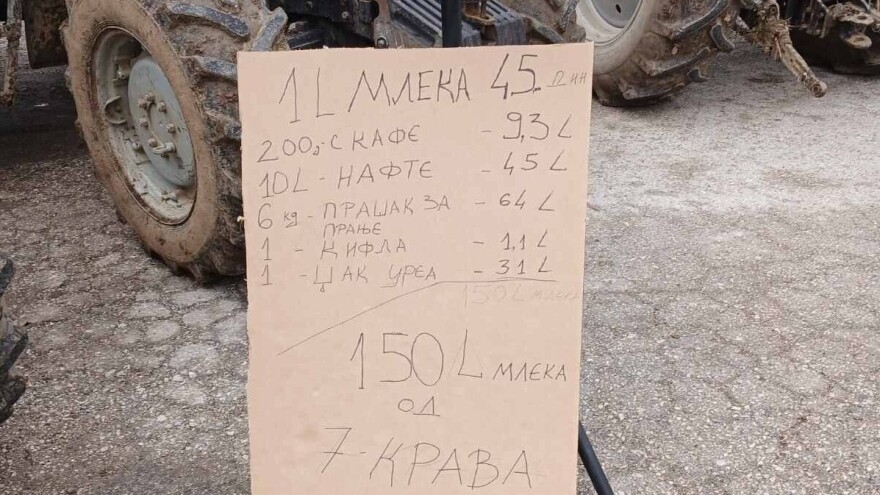 1L МЛЕКА 45. ДИН
200г-С КАФЕ - 9,3 L
10L - НАФТЕ - 45 L
6 кд - ПРАШАК ЗА - 64 L
ПРАЊЕ
1 - КИФЛА - 1,1 L
1 - ЏАК УРЕА - 31 L
150L МЛЕКА
150L МЛЕКА
ОД
7-КРАВА